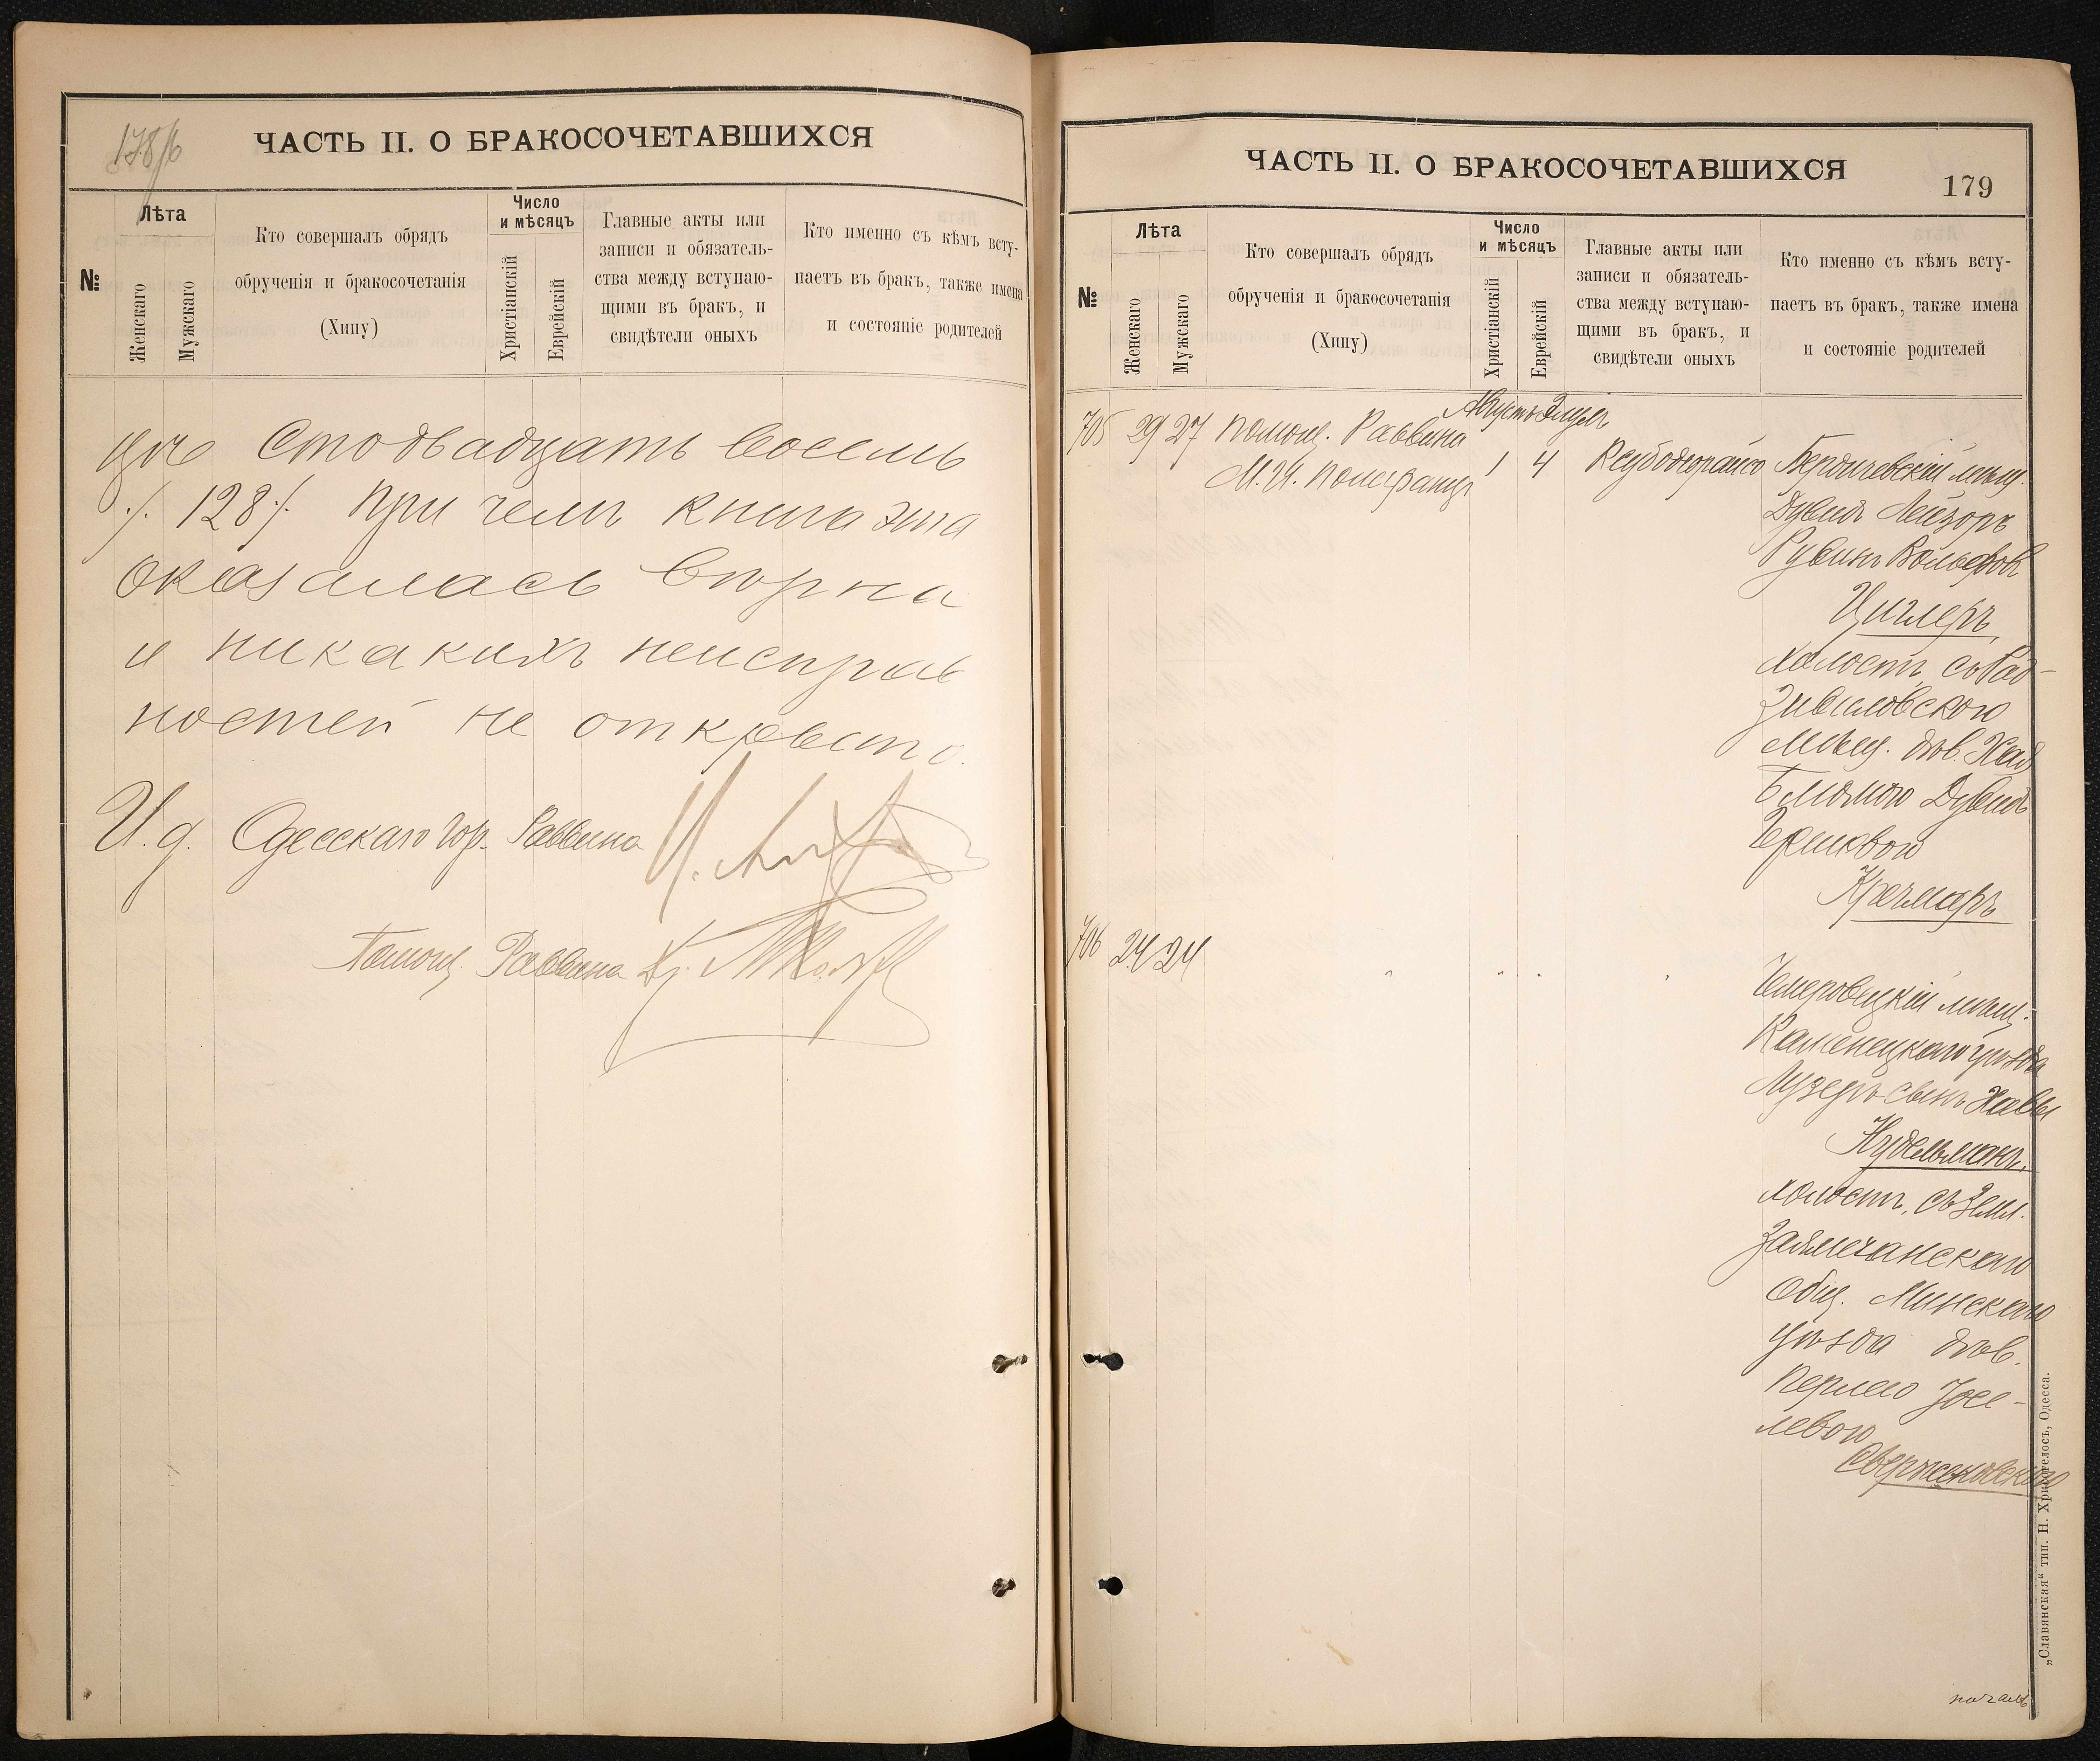 178/б
ЧАСТЬ II. О БРАКОСОЧЕТАВШИХСЯ
№
Лѣта
Женскаго
Мужскаго
Кто совершалъ обрядъ
обрученія и бракосочетанія
(Хипу)
Число
и мѣсяцъ
Христіанскій
Еврейскій
Главные акты или
записи и обязатель-
ства между вступаю-
щими въ бракъ, и
свидѣтели оныхъ
Кто именно съ кѣмъ всту-
паетъ въ бракъ, также имена
и состояніе родителей
сто двадцать восемь
./. 128 ./. при чемъ книга эта
оказалась вѣрна
и никакихъ неисправ
ностей не открыто.
И. д. Одесскаго Гор. Раввина
Помощ. Раввина
ЧАСТЬ II. О БРАКОСОЧЕТАВШИХСЯ
179
№
Лѣта
Женскаго
Мужскаго
Кто совершалъ обрядъ
обрученія и бракосочетанія
(Хипу)
Число
и мѣсяцъ
Христіанскій
Еврейскій
Главные акты или
записи и обязатель-
ства между вступаю-
щими въ бракъ, и
свидѣтели оныхъ
Кто именно съ кѣмъ всту-
паетъ въ бракъ, также имена
и состояніе родителей
Августъ Элулъ
705 29 27 Помощ. Раввина
М. И. Полефанцъ 1 4 Ксубодеорайсо Бердичевскій мѣщ.
Дувидъ Лейзоръ
Рувинъ Вольфовъ
Циглеръ,
холостъ, съ Рад-
зивиловскою
мѣщ. дѣв. Хая
Блюмою Дувидъ
Гершковою
Кречмаръ
706 24 24 " " " "
Чемеровецкій мѣщ.
Каменецкаго уѣзда
Лузеръ сынъ Хавы
Нудельманъ,
холостъ, съ Земл.
Заямечанскаго
Общ. Минскаго
уѣзда дѣв.
Перлею Іосе-
левою
Свержановскою
„Славянская“ тип. Н. Хрисогелосъ, Одесса.